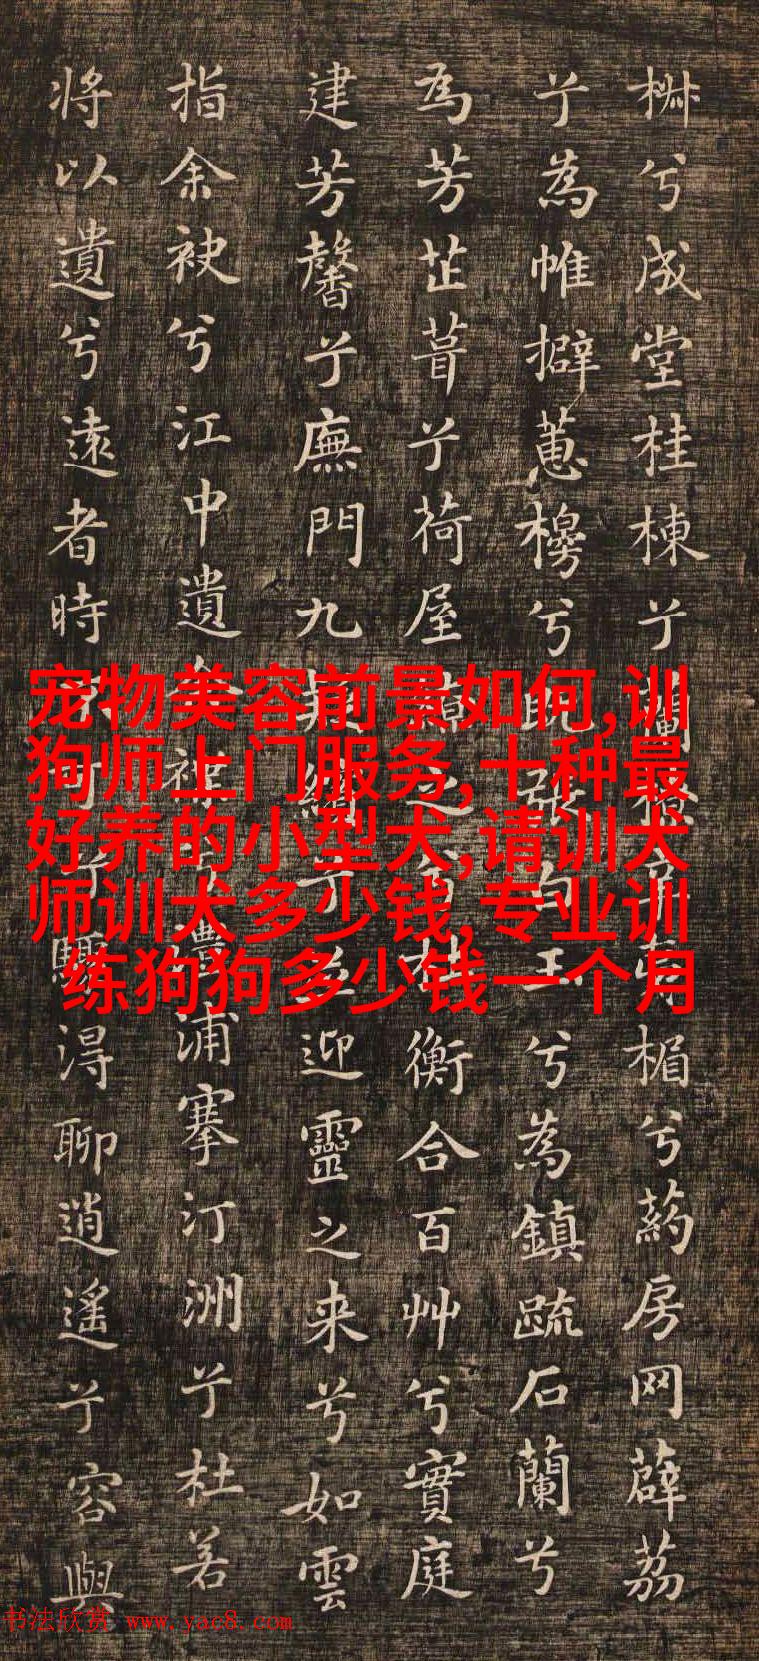 兮成堂桂棟兮蘭橑辛夷楣兮葯房网薜荔
兮為帷擗蕙櫋兮既張白玉兮為鎮疏石蘭兮
為芳芷葺兮荷屋繚之兮杜衡合百艸兮實庭
建芳馨兮廡門九嶷繽兮並迎靈之来兮如雲
指余袂兮江中遺余褋兮澧浦搴汀洲兮杜若
将以遺兮遠者時不可兮驟淂聊逍遙兮容與
宠物美容前景如何,训
狗师上门服务,十种最
好养的小型犬,请训犬
师训犬多少钱,专业训
练狗狗多少钱一个月
书法欣赏 www.yac8.com